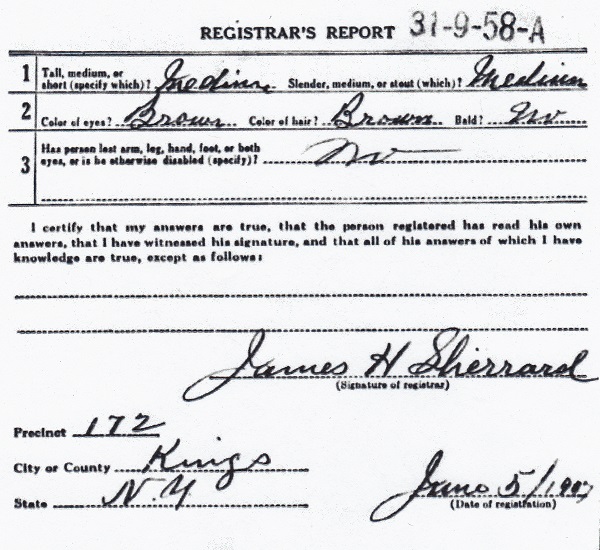 REGISTRAR'S REPORT 31-9-58-A
1 Tall, medium, or short (specify which)? Medium Slender, medium, or stout (which)? Medium
2 Color of eyes? Brown Color of hair? Brown Bald? No
3 Has person lost arm, leg, hand, foot, or both
eyes, or is he otherwise disabled (specify)? No
I certify that my answers are true, that the person registered has read his own
answers, that I have witnessed his signature, and that all of his answers of which I have
knowledge are true, except as follows:
James H Sherrard
(Signature of registrar)
Precinct 172
City or County Kings
State N.Y
June 5/1917
(Date of registration)